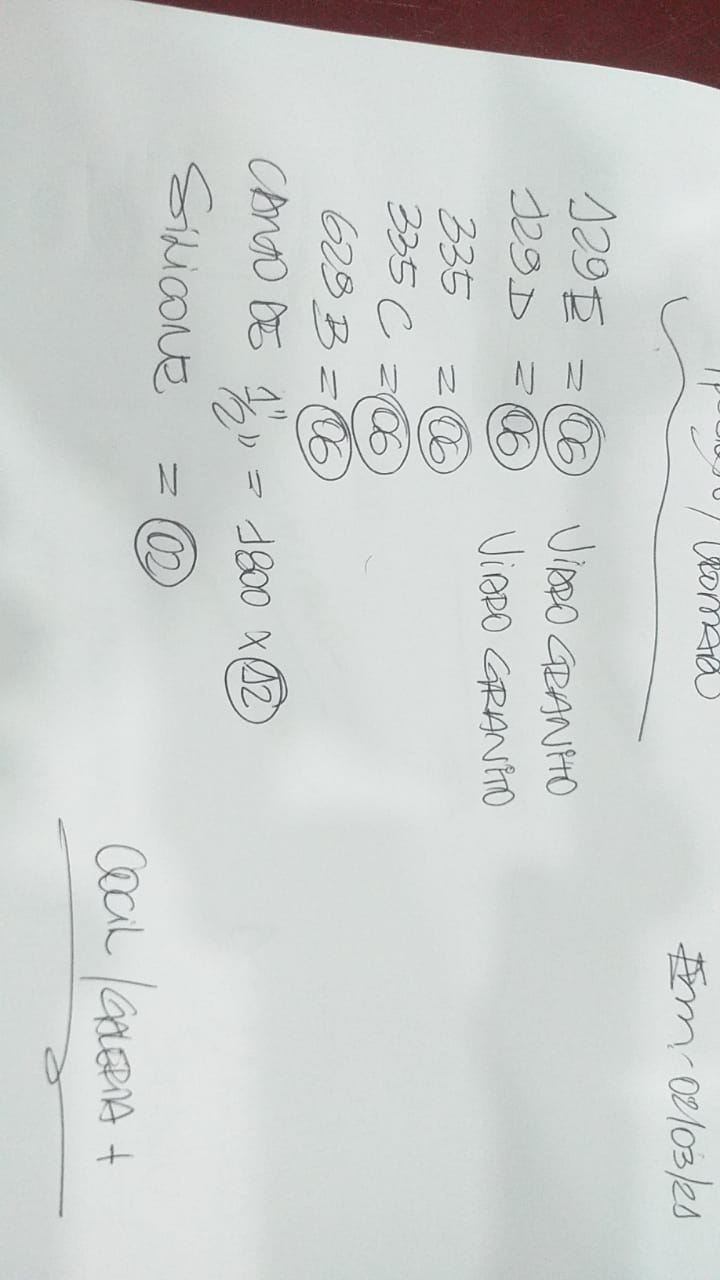 Em: 02/03/21
129 E = 06 VIDRO GRANITO
129 D = 06 VIDRO GRANITO
335 = 06
335 C = 06
629 B = 06
CANO DE 1/2" = 1800 x 12
SILICONE = 02
Cecil / GALERIA +